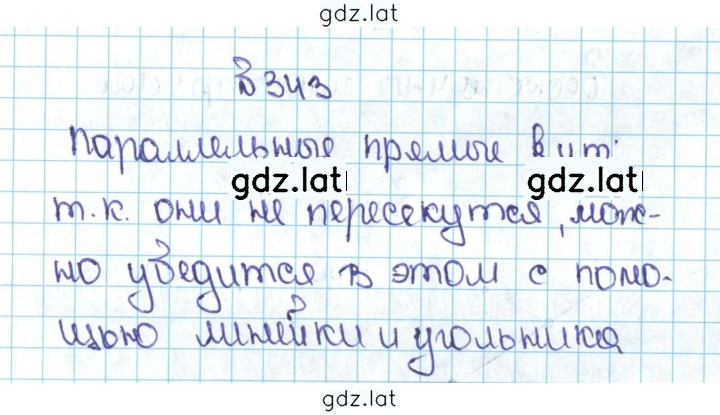 gdz.lat
в 343
параллельные прямые
gdz.lat gdz.lat
т.к. они не пересекутся, мож-
но убедится в этом с помо-
щью линейки и угольника
gdz.lat